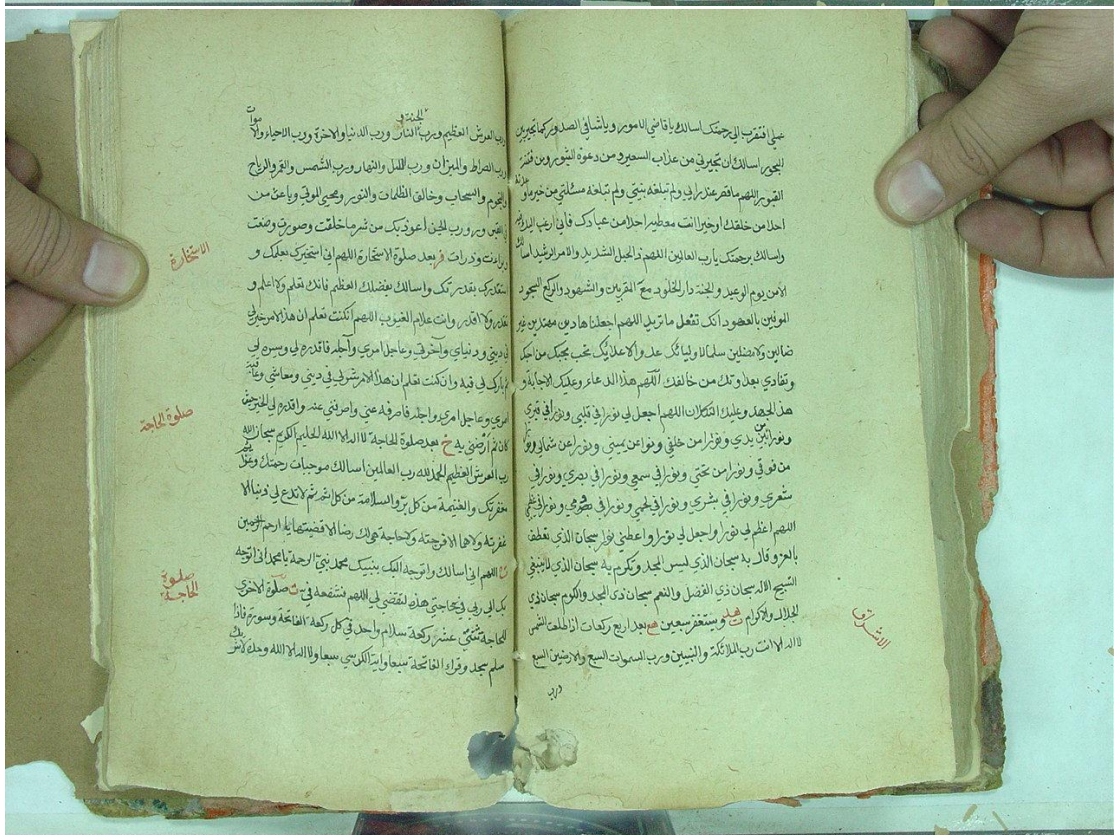 عملي افتقرت الى رحمتك اسالك يا قاضي الامور ويا شافي الصدور كما تجير بين
البحور اسالك ان تجيرني من عذاب السعير ومن دعوة الثبور ومن فتنة
القبور اللهم ما قصر عنه رايي ولم تبلغه نيتي ولم تبلغه مسئلتي من خير وعدته
احدا من خلقك او خير انت معطيه احدا من عبادك فاني ارغب اليك فيه
واسالك برحمتك يا رب العالمين اللهم ذا الحبل الشديد والامر الرشيد اسالك
الامن يوم الوعيد والجنة دار الخلود مع المقربين والشهود والركع السجود
الموفين بالعهود انك تفعل ما تريد اللهم اجعلنا هادين مهتدين غير
ضالين ولا مضلين سلما لاوليائك عدوا لاعدائك نحب بحبك من احبك
ونعادي بعداوتك من خالفك اللهم هذا الدعاء وعليك الاجابة و
هذا الجهد وعليك التكلان اللهم اجعل لي نورا في قلبي ونورا في قبري
ونورا من بين يدي ونورا من خلفي ونورا عن يميني ونورا عن شمالي ونورا
من فوقي ونورا من تحتي ونورا في سمعي ونورا في بصري ونورا في
شعري ونورا في بشري ونورا في لحمي ونورا في دمي ونورا في عظمي
اللهم اعظم لي نورا واجعل لي نورا واعطني نورا سبحان الذي تعطف
بالعز وقال به سبحان الذي لبس المجد وتكرم به سبحان الذي لا ينبغي
التسبيح الا له سبحان ذي الفضل والنعم سبحان ذي المجد والكرم سبحان ذي
الجلال والاكرام ويستغفر سبعين بعد اربع ركعات اذا طلعت الشمس
لا اله الا انت رب الملائكة والنبيين ورب السموات السبع والارضين السبع
ورب
الاشراق
رب العرش العظيم ورب الجنة و النار ورب الدنيا والاخرة ورب الاحياء والاموات
ورب الصراط والميزان ورب الليل والنهار ورب الشمس والقمر والرياح
والنجوم والسحاب وخالق الظلمات والنور ومحيي الموتى وباعث من
في القبور ورب الجن أعوذ بك من شر ما خلقت وصورت وضعت
وبرات وذرات بعد صلوة الاستخارة اللهم اني استخيرك بعلمك و
استقدرك بقدرتك واسالك بفضلك العظيم فانك تعلم ولا اعلم و
تقدر ولا اقدر وانت علام الغيوب اللهم ان كنت تعلم ان هذا الامر خير لي
في ديني ودنياي وآخرتي وعاجل امري وآجله فاقدره لي ويسره لي
ثم بارك لي فيه وان كنت تعلم ان هذا الامر شر لي في ديني ومعاشي وعاقبة
امري وعاجل امري واجله فاصرفه عني واصرفني عنه واقدر لي الخير حيث
كان ثم أرضني به خ بعد صلوة الحاجة لا اله الا الله الحليم الكريم سبحان الله
رب العرش العظيم الحمد لله رب العالمين اسالك موجبات رحمتك وعزائم
مغفرتك والغنيمة من كل بر والسلامة من كل اثم لا تدع لي ذنبا الا
غفرته ولا هما الا فرجته ولا حاجة هي لك رضا الا قضيتها يا ارحم الراحمين
اللهم اني اسالك واتوجه اليك بنبيك محمد نبي الرحمة يا محمد اني اتوجه
بك الى ربي في حاجتي هذه لتقضى لي اللهم فشفعه في صلوة الاخرى
للحاجة ثنتي عشر ركعة سلام واحد في كل ركعة الفاتحة وسورة فاذا
سلم سجد وقرا الفاتحة سبعا واية الكرسي سبعا ولا اله الا الله وحده لا شريك
الاستخارة
صلوة الحاجة
صلوة
الحاجة